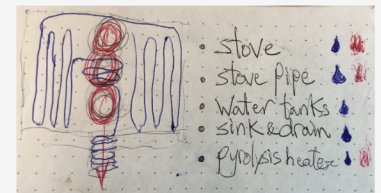 stove
stove pipe
Water tanks
sink & drain
pyrolysis heater